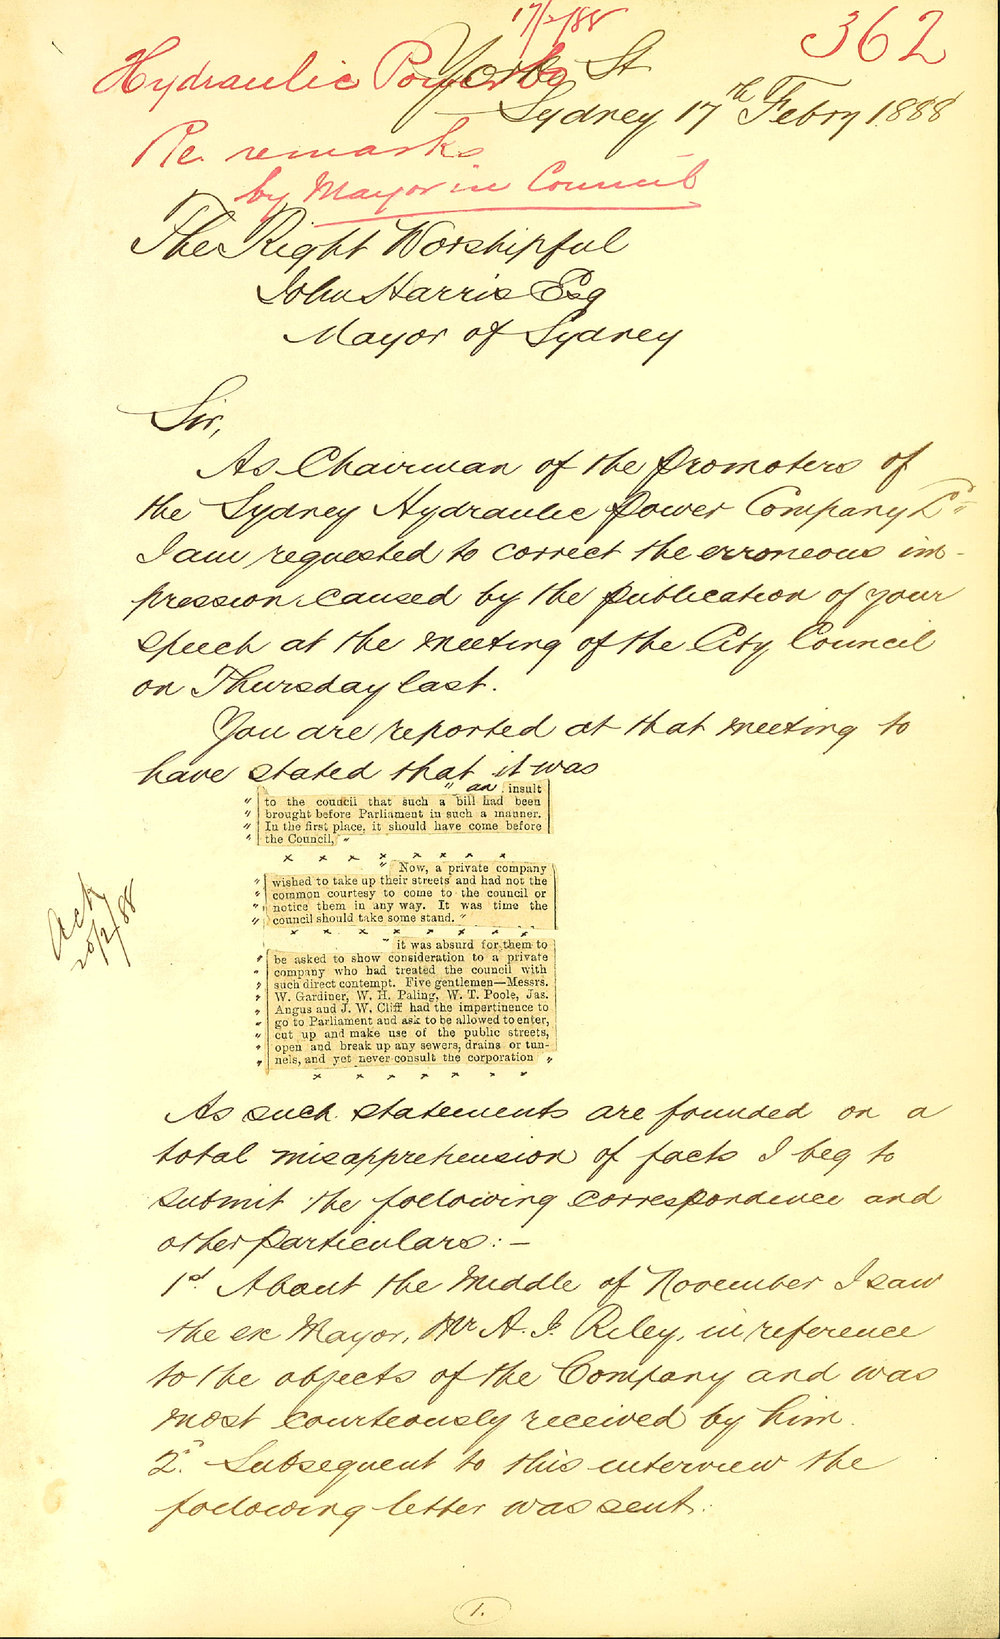 17/2/88
362
Hydraulic Power Co
York St
Sydney 17th Febry 1888
Re. remarks
by Mayor in Council
The Right Worshipful
John Harris Esq
Mayor of Sydney
Sir,
As Chairman of the Promoters of
the Sydney Hydraulic Power Company Ld
I am requested to correct the erroneous im-
pression caused by the publication of your
speech at the meeting of the City Council
on Thursday last.
You are reported at that meeting to
have stated that it was
" an insult
" to the council that such a bill had been
" brought before Parliament in such a manner.
" In the first place, it should have come before
" the Council, "
x x x x x x x x
" Now, a private company
" wished to take up their streets and had not the
" common courtesy to come to the council or
" notice them in any way. It was time the
" council should take some stand. "
x x x x x x x x
" it was absurd for them to
" be asked to show consideration to a private
" company who had treated the council with
" such direct contempt. Five gentlemen—Messrs.
" W. Gardiner, W. H. Paling, W. T. Poole, Jas.
" Angus and J. W. Cliff had the impertinence to
" go to Parliament and ask to be allowed to enter,
" cut up and make use of the public streets,
" open and break up any sewers, drains or tun-
" nels, and yet never consult the corporation "
x x x x x x x
Ack
20/2/88
As such statements are founded on a
total misapprehension of facts I beg to
submit the following correspondence and
other particulars: —
1st About the Middle of November I saw
the ex Mayor, Mr A. J. Riley, in reference
to the objects of the Company and was
most courteously received by him.
2n. Subsequent to this interview the
following letter was sent:
1.